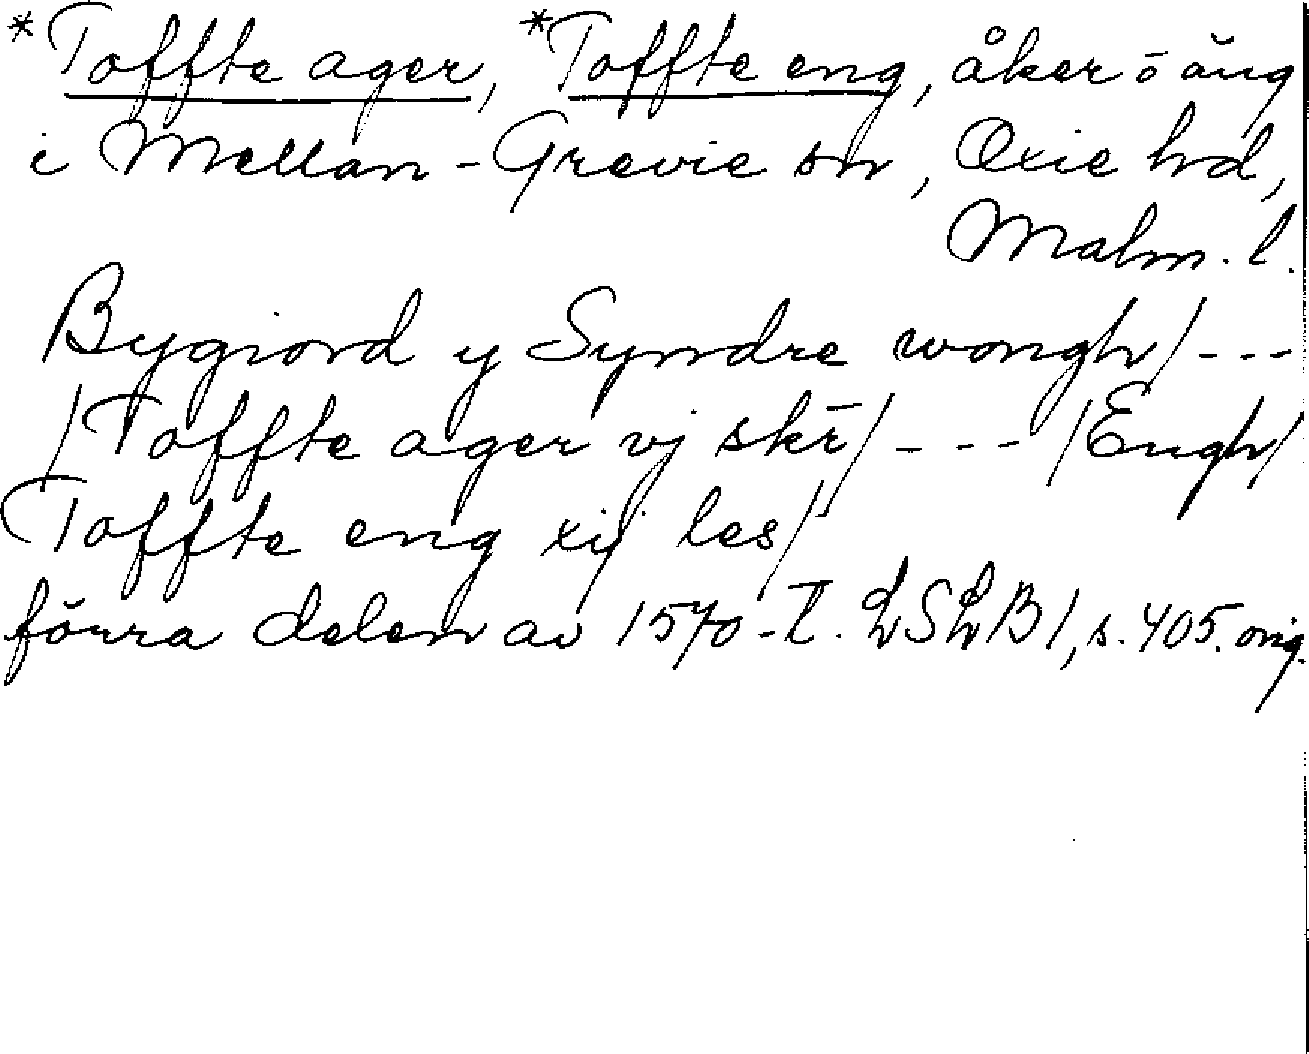 *Toffte ager, *Toffte eng, åker ō äng
i Mellan-Grevie sn, Oxie hd,
Malm. l.
Bygiord y Syndre wongh/---
/Toffte ager vj skr̄/--- /Engh/
Toffte eng xij les/
förra delen av 1570-t. LSLB 1, s. 405. orig.